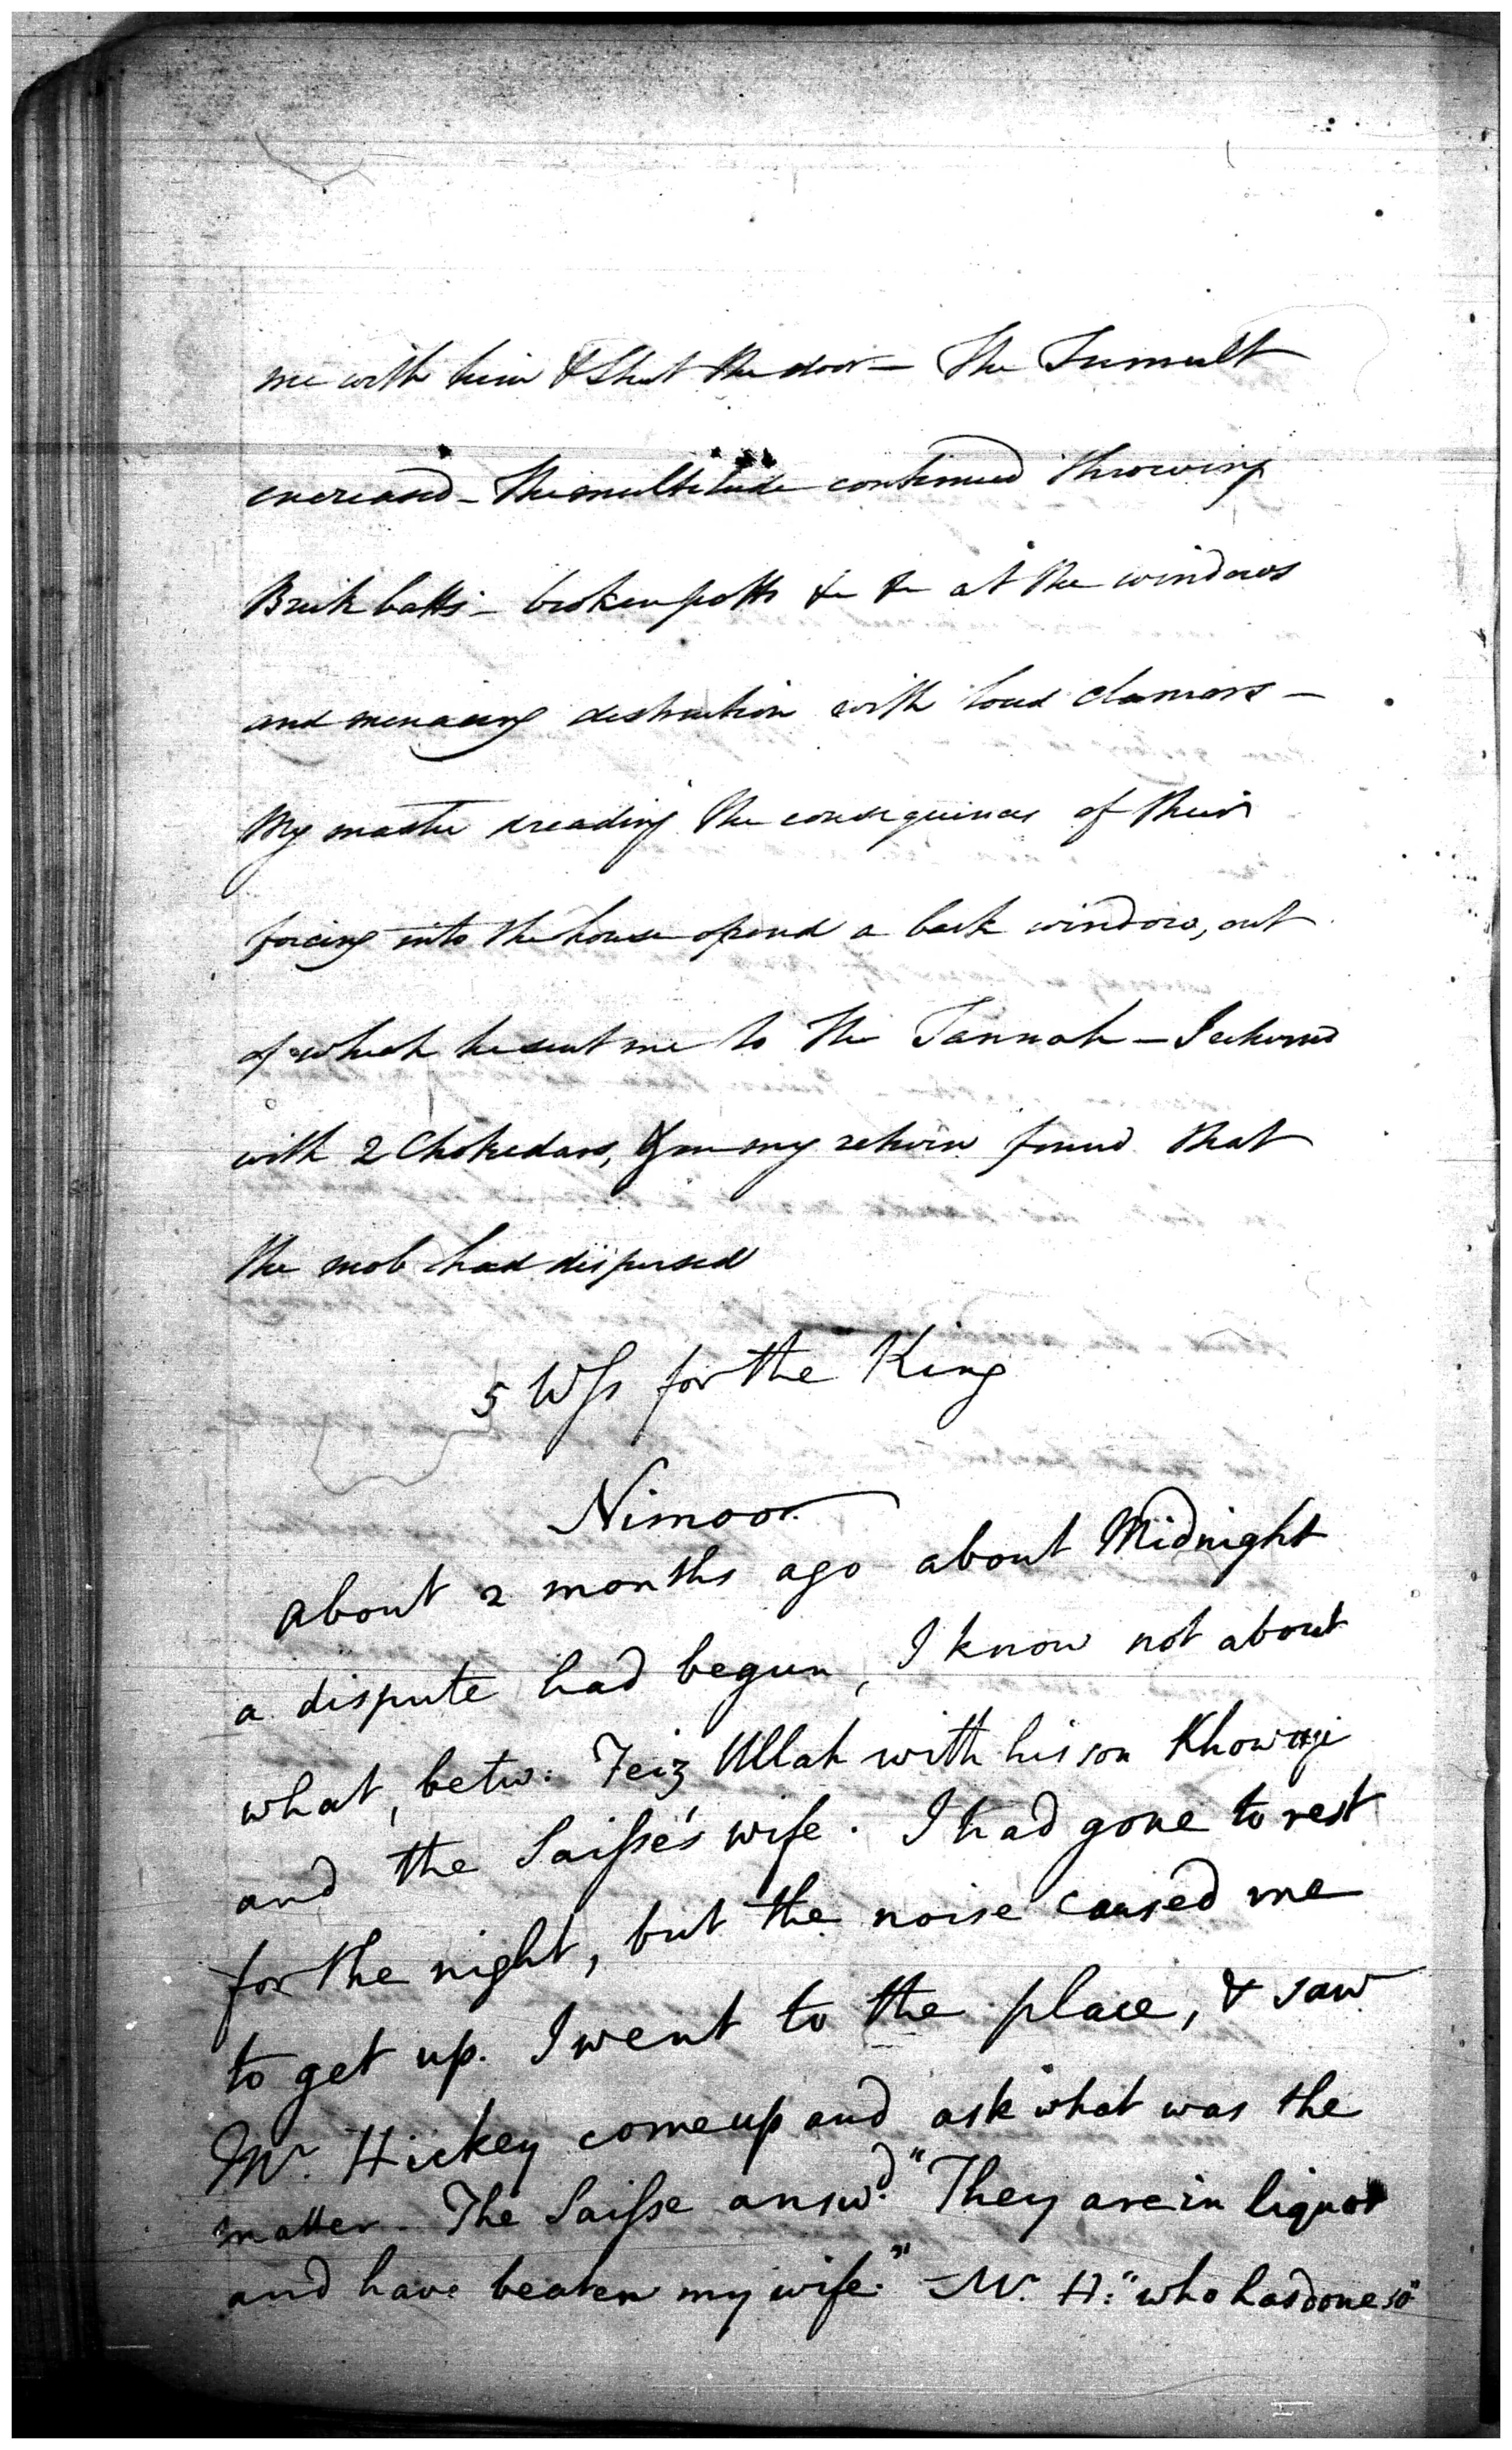 me with him & Shut the door — The Tumult
encreased — The multitude continued throwing
Brick batts — broken potts &c &c at the windows
and menacing destruction with loud clamors —
My master dreading the consequences of their
forcing into the house opend a back window, out
of which he sent me to the Tannah — I returnd
with 2 Chokedars, & on my return found that
the mob had dispersed
5 Wss for the King
Nimoo
About 2 months ago about Midnight
a dispute had begun, I know not about
what, betw: Feiz Ullah with his son
and the Saisse's wife. I had gone to rest
for the night, but the noise caused me
to get up. I went to the place, & saw
Mr. Hickey come up and ask what was the
matter. The Saisse answd. "They are in liquor
and have beaten my wife." — Mr. H: "who has done so"